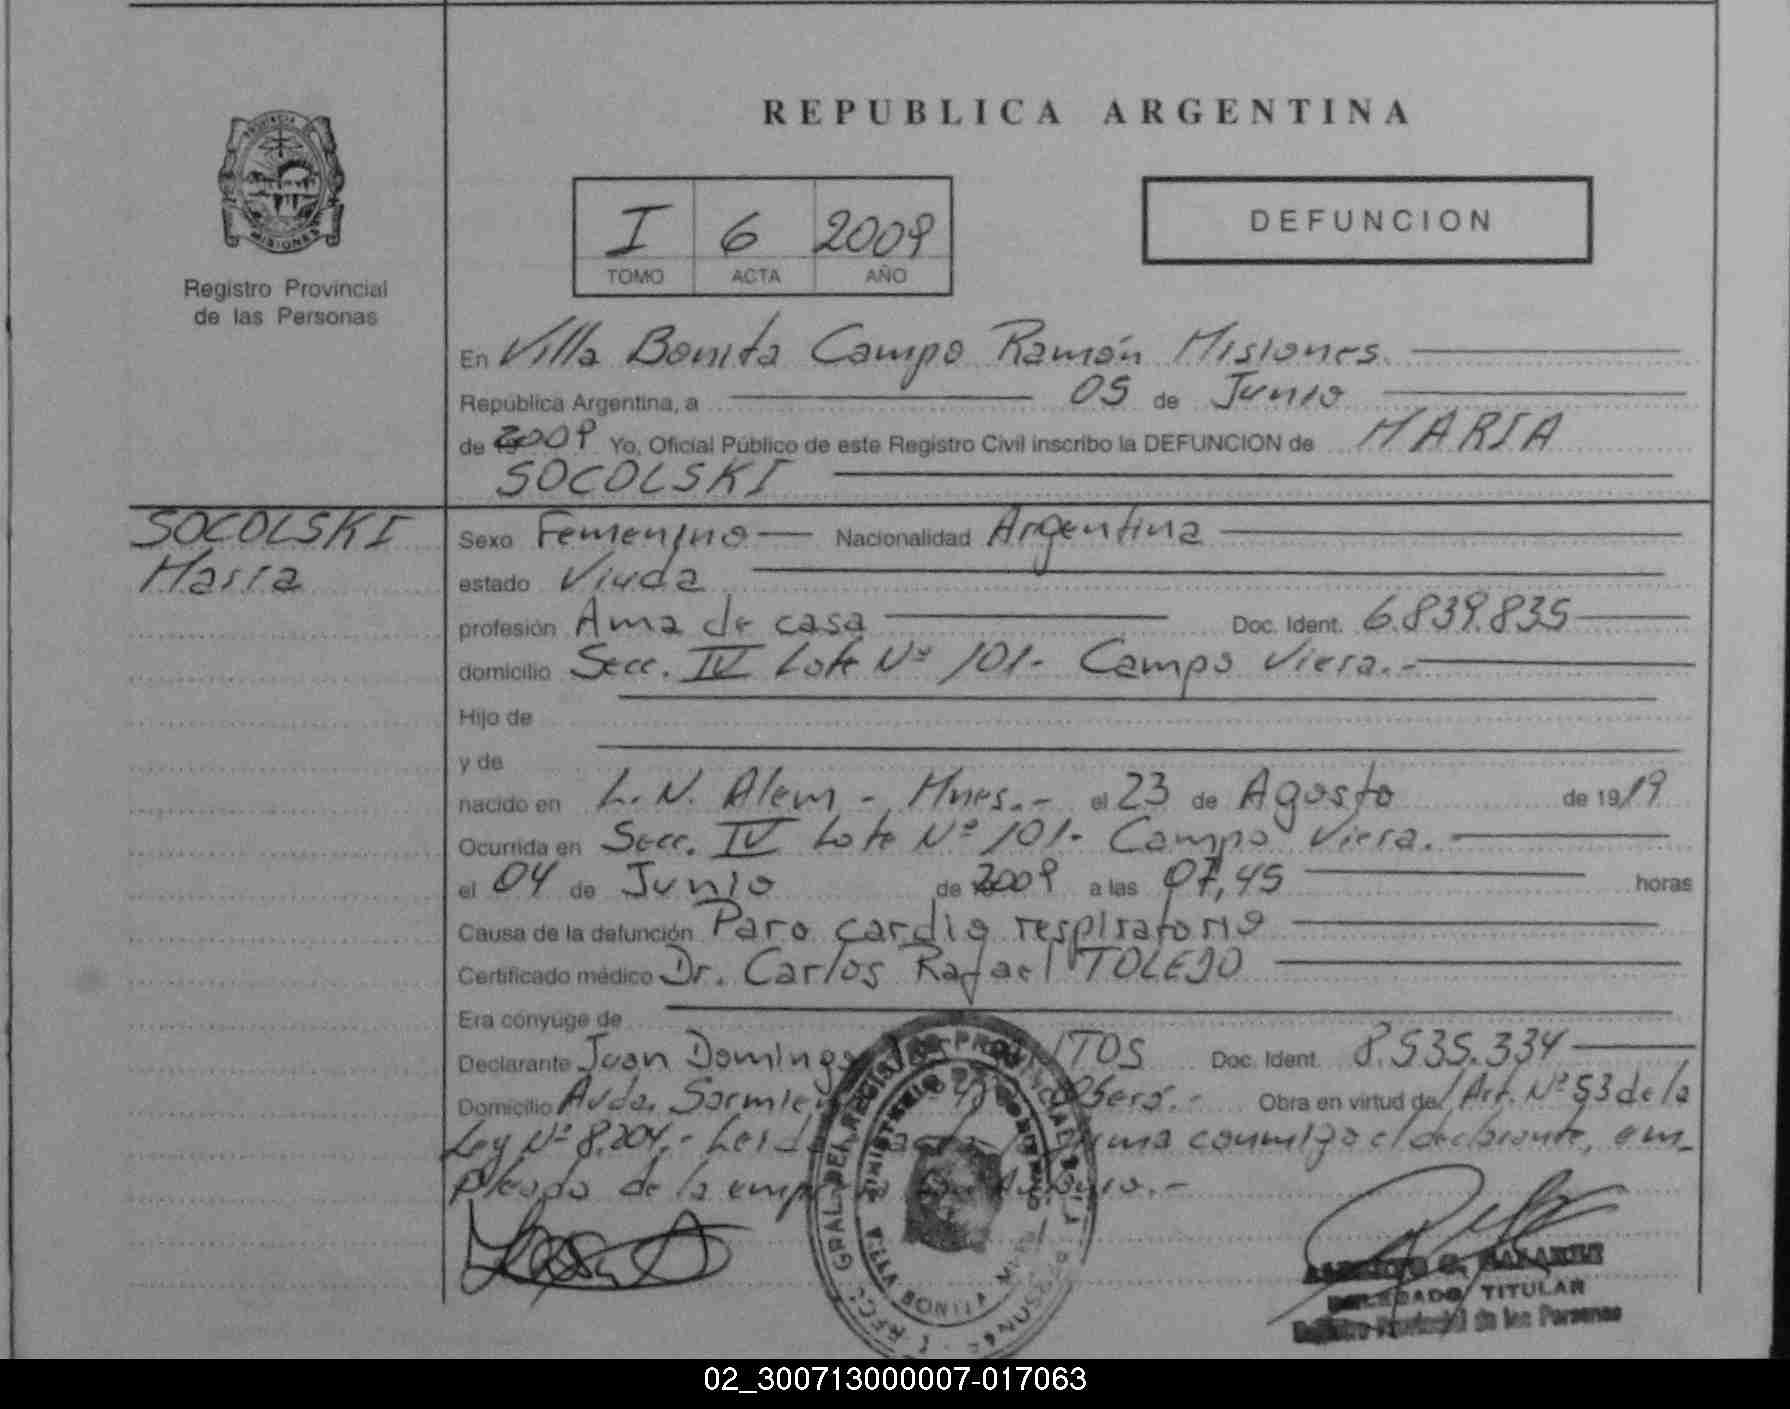 REPUBLICA ARGENTINA
PROVINCIA DE MISIONES
Registro Provincial
de las Personas
I 6 2009
TOMO ACTA AÑO
DEFUNCION
En Villa Bonita Campo Ramón Misiones.
República Argentina, a 05 de Junio
de 2009 Yo, Oficial Público de este Registro Civil inscribo la DEFUNCION de MARIA
SOCOLSKI
SOCOLSKI
Maria
Sexo Femenino Nacionalidad Argentina
estado Viuda
profesión Ama de casa Doc. Ident. 6.839.835
domicilio Secc. IV Lote Nº 101- Campo Viera.-
Hijo de
y de
nacido en L. N. Alem - Mnes.- el 23 de Agosto de 1919
Ocurrida en Secc. IV Lote Nº 101- Campo Viera.-
el 04 de Junio de 2009 a las 07,45 horas
Causa de la defunción Paro cardio respiratorio
Certificado médico Dr. Carlos Rafael TOLEDO
Era cónyuge de
Declarante Juan Domingo Doc. Ident. 8.535.334
Domicilio Avda. Oberá.- Obra en virtud del Art. Nº 53 de la
Ley Nº 8.204.- firma conmigo el declarante, em-
pleado de la
MINISTERIO DE GOBIERNO
VILLA BONITA
DELEGADO TITULAR
Registro Provincial de las Personas
02_300713000007-017063